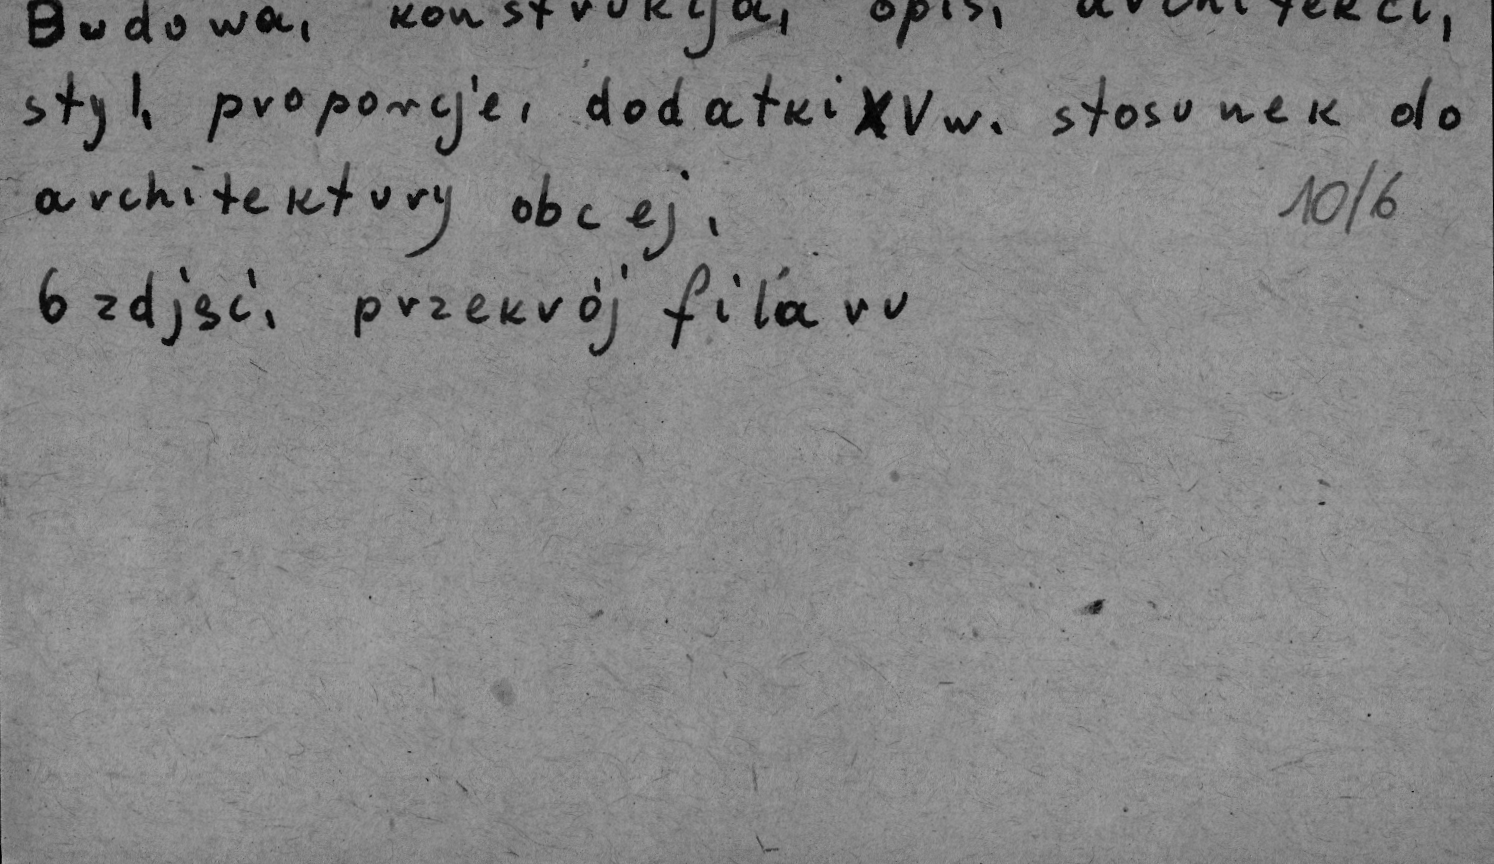 Budowa, konstrukcja, opis, architekci,
styl, proporcje, dodatki XV w. stosunek do
architektury obcej,
10/6
6 zdjęć, przekrój filaru